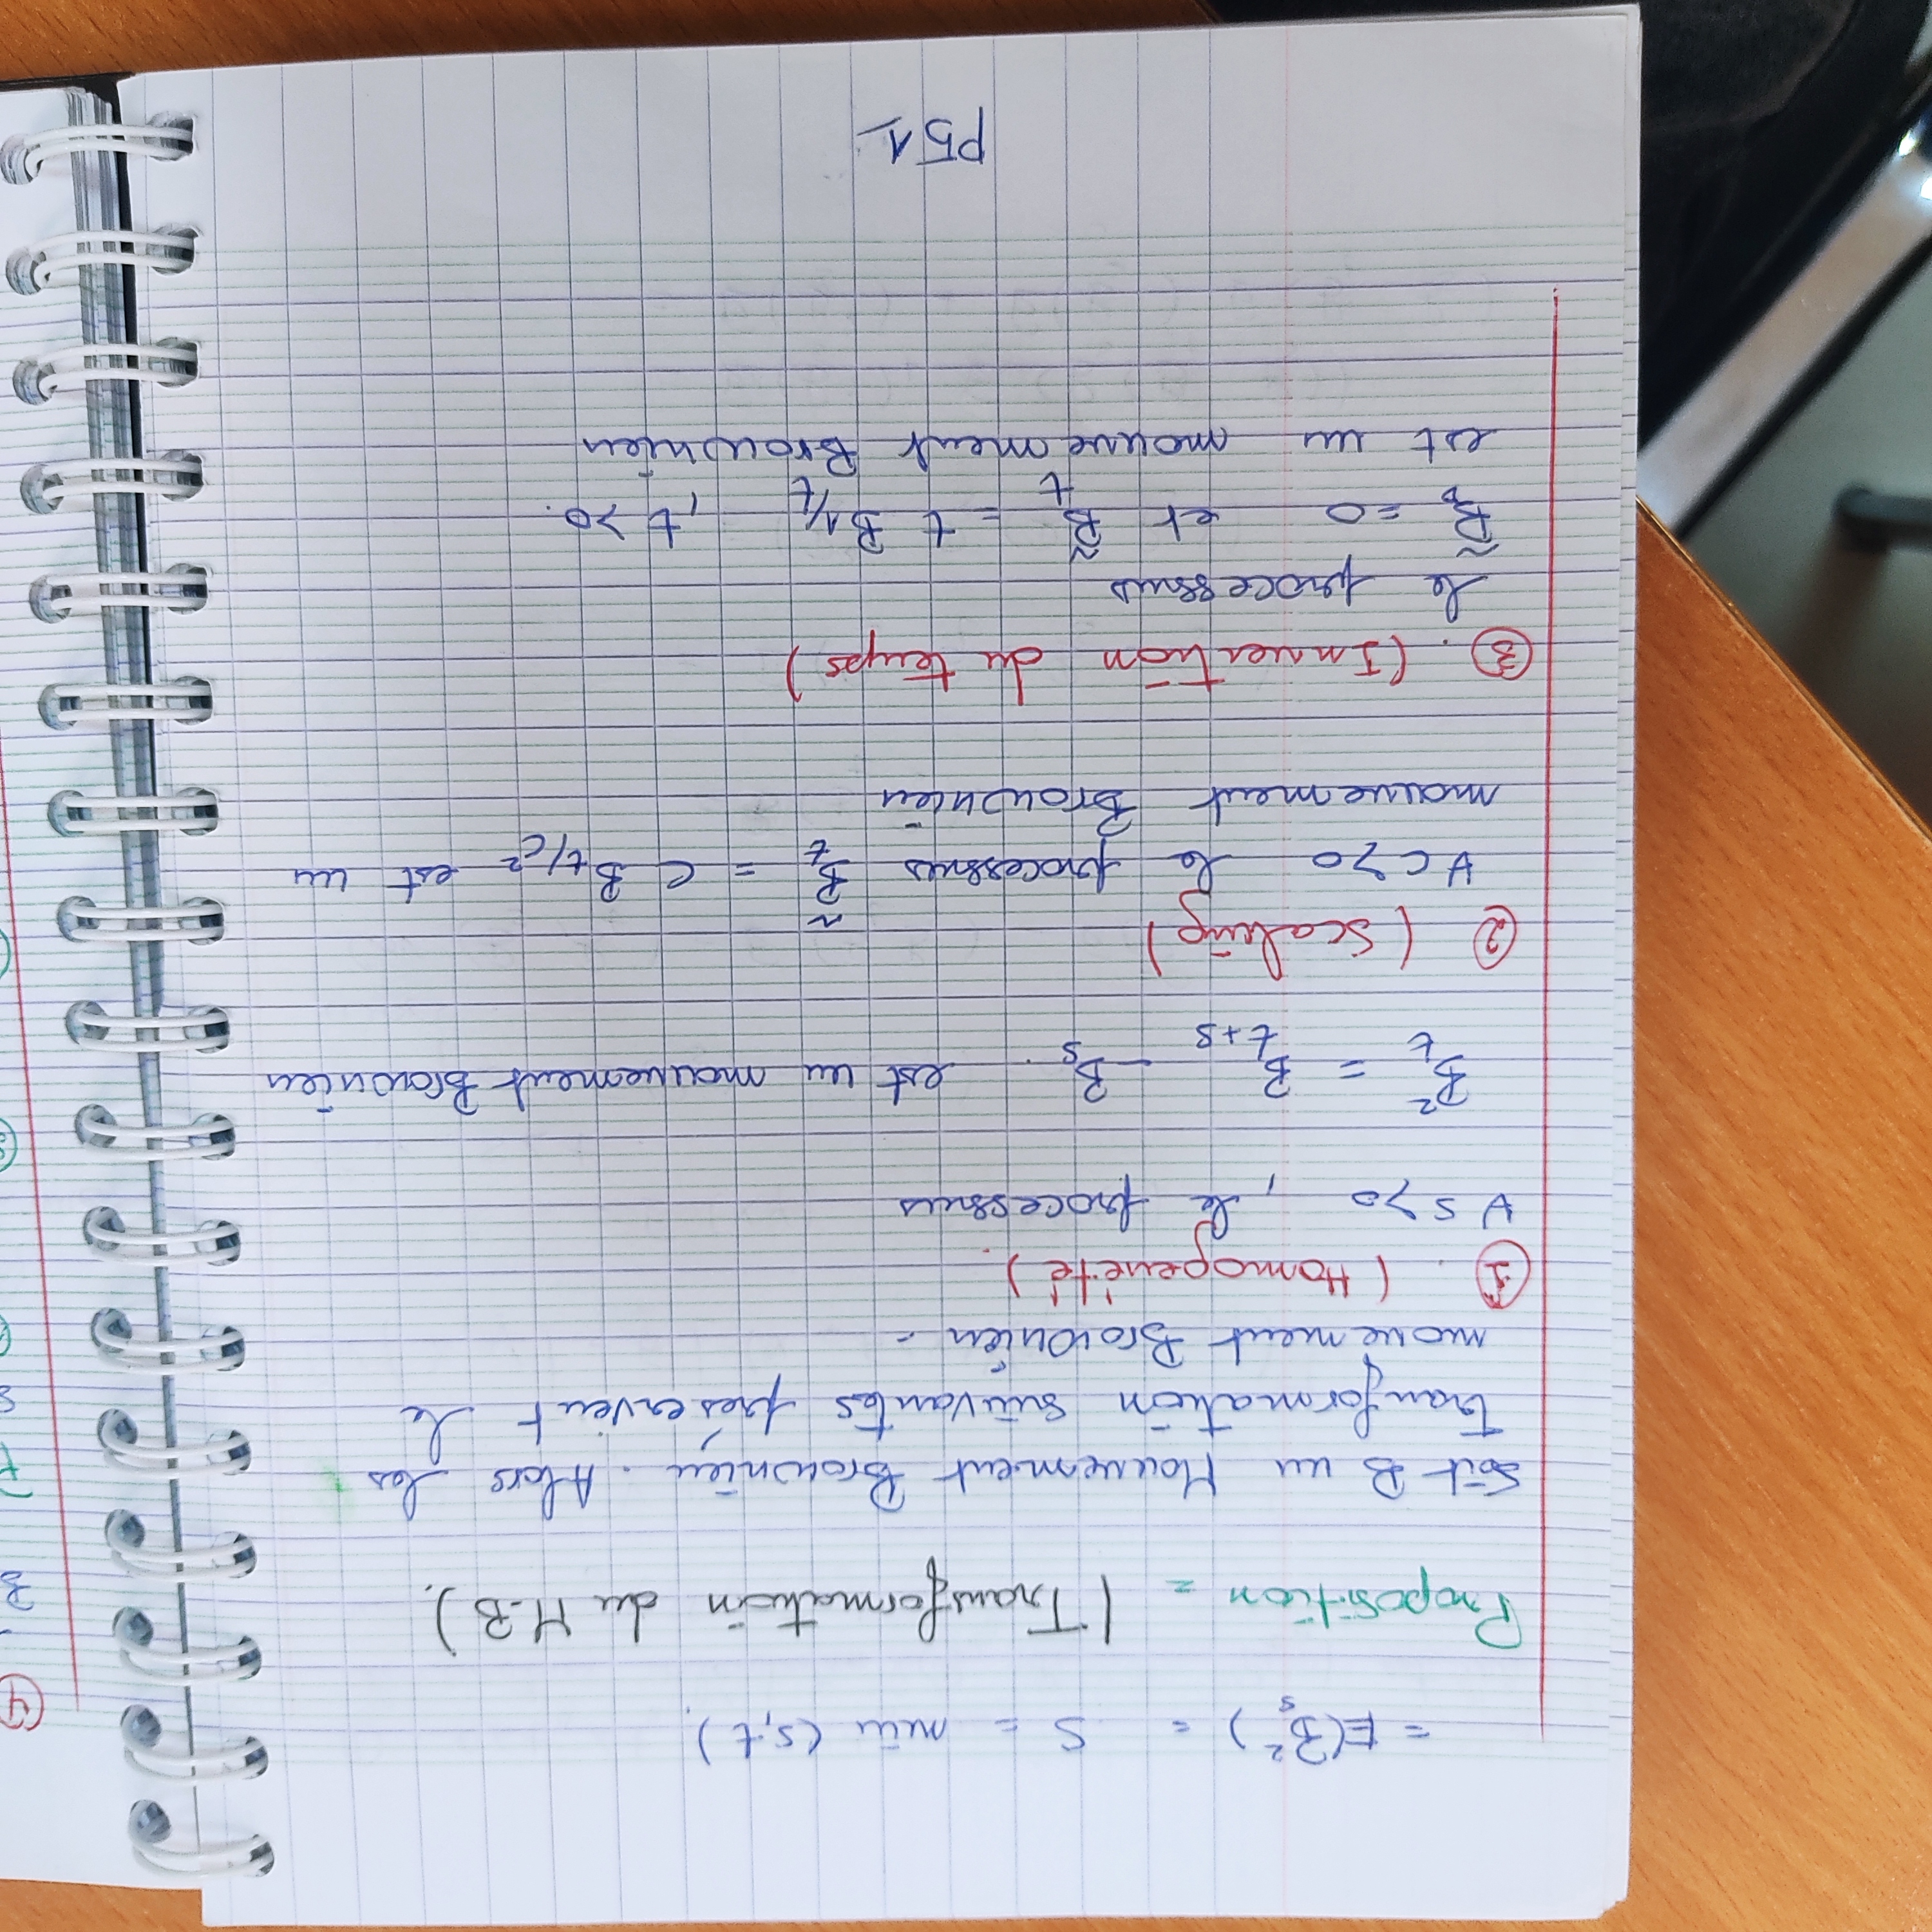 = E(B_s^2) = S = min (s,t).
Proposition = (Transformation du M-B).
Soit B un Mouvement Brownien. Alors les
tranformation suivantes préservent le
mouement Brownien -
① . (Homogenété).
∀ s>0 , le processus
B_t^2 = B_{t+s} - B_s . est un mouvement Brownien
② (Scaling)
∀ c>0 le processus B̃_t = c B_{t/c^2} est un
mouvement Brownien
③ . (Invertion du temps)
le processus
B̃_0 = 0 et B̃_t = t B_{1/t} , t >0.
est un mouvement Brownien
P51
④
B